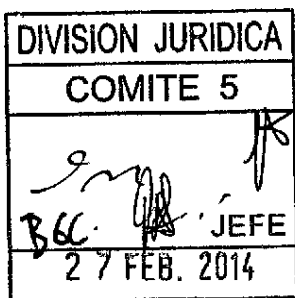 DIVISION JURIDICA
COMITE 5
JEFE
27 FEB. 2014